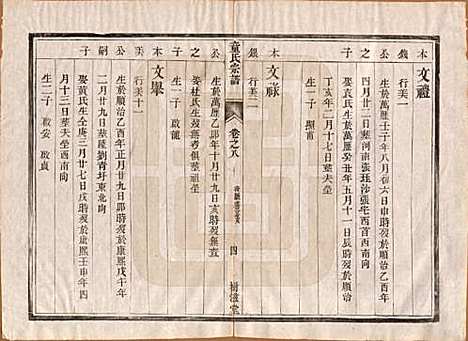 文禮
木
錢
公
子
行美一
生於萬曆壬子年八月初六日申時歿於順治乙酉年
四月廿二日葬河南張班沙張宅西首西南向
娶袁氏生於萬曆癸丑年五月十一日辰時歿於順治
丁亥年二月十七日葬夫塋
生一子 顯甫
文祿
木
銀
公
之
子
行美二
生於萬曆乙卯年十月廿九日亥時歿無查
娶杜氏生歿無考俱葬祖塋
生一子 啟龍
文舉
木
美
公
嗣
子
行美十一
生於順治乙酉年正月廿九日卯時歿於康熙戊午年
二月廿九日葬陵劉青圩東北向
娶黃氏生於
年三月廿七日戌時歿於康熙壬申年四
月十三日葬夫塋西南向
生二子 啟安 啟貞
童氏宗譜
卷之八
四
樹滋堂